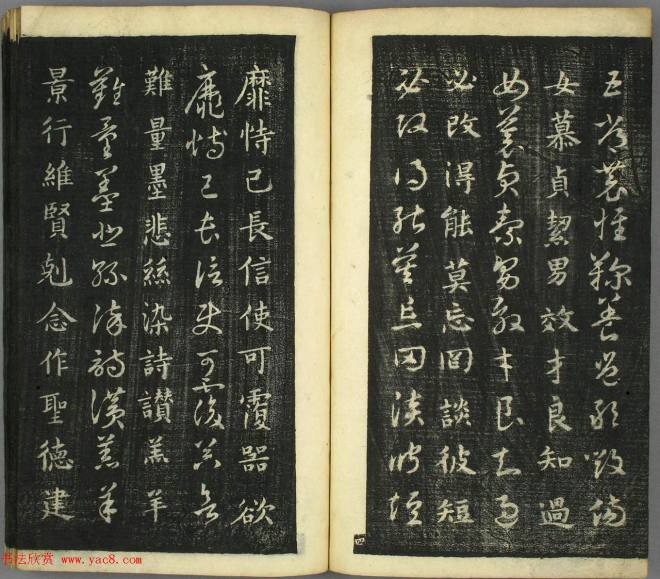 五常恭惟鞠養豈敢毀傷
女慕貞絜男效才良知過
女慕貞絜男效才良知過
必改得能莫忘罔談彼短
必改得能莫忘罔談彼短
四
靡恃己長信使可覆器欲
靡恃己長信使可覆器欲
難量墨悲絲染詩讃羔羊
難量墨悲絲染詩讃羔羊
景行維賢剋念作聖德建
书法欣赏 www.yac8.com